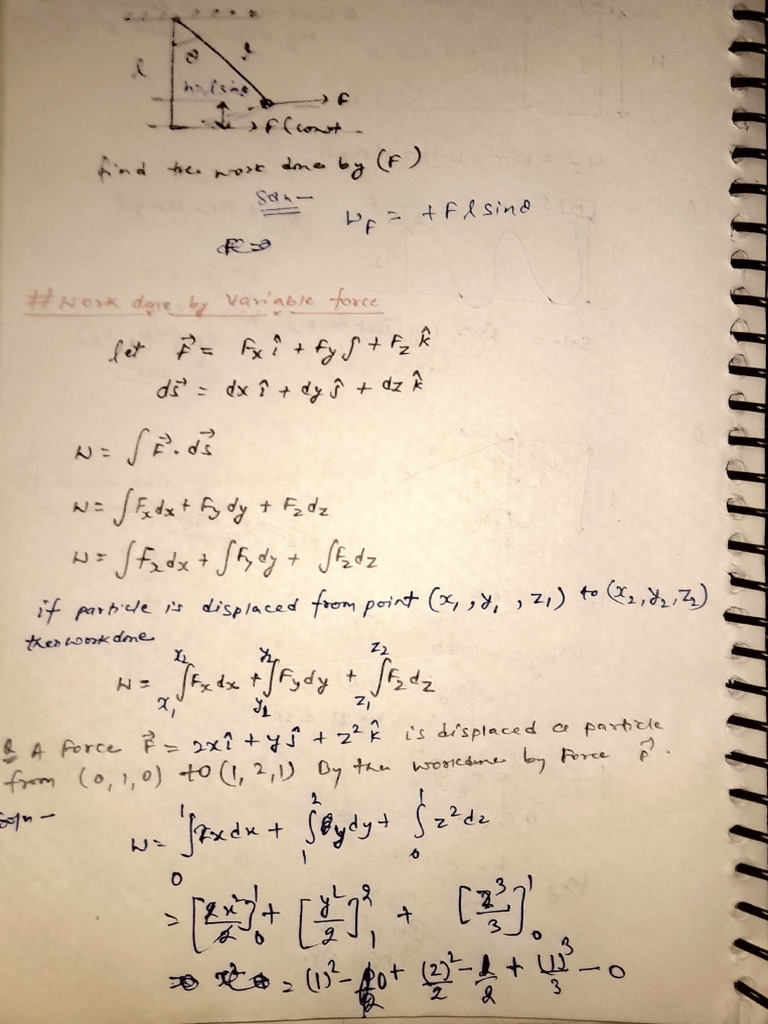 θ
l
l
h=lsinθ
→ F
→ F (const.
find the work done by (F)
Soln —
W_F = +Flsinθ
# Work done by Variable force
let F⃗ = Fx î + Fy ĵ + Fz k̂
ds⃗ = dx î + dy ĵ + dz k̂
W = ∫ F⃗ . ds⃗
W = ∫ Fx dx + Fy dy + Fz dz
W = ∫ Fx dx + ∫ Fy dy + ∫ Fz dz
if particle is displaced from point (x₁, y₁, z₁) to (x₂, y₂, z₂)
then work done
W = ∫_{x₁}^{x₂} Fx dx + ∫_{y₁}^{y₂} Fy dy + ∫_{z₁}^{z₂} Fz dz
Q A force F⃗ = 2x î + y ĵ + z² k̂ is displaced a particle
from (0, 1, 0) to (1, 2, 1) By the workdone by Force F⃗.
Soln —
W = ∫_0^1 2x dx + ∫_1^2 y dy + ∫_0^1 z² dz
= [2x²/2]_0^1 + [y²/2]_1^2 + [z³/3]_0^1
= (1)² - 0 + (2)²/2 - 1/2 + (1)³/3 - 0